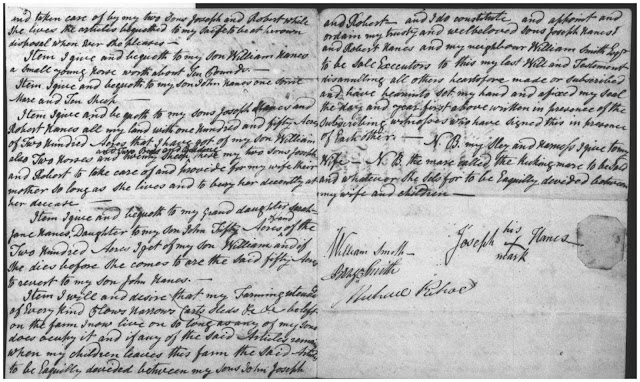 and taken care of by my two Sons Joseph and Robert while
She lives the articles bequeathed to my Said wife to be at her own
disposal when Ever She pleases —
Item I give and bequeth to my son William Hanes
a Small young Horse worth about Ten Pounds —
Item I give and bequeth to my Son John Hanes one
Mare and Ten Sheep —
Item I give and bequeth to my sons Joseph Hanes and
Robert Hanes all my land with one Hundred and fifty Acres
of Two Hundred Acres that I have got of my Son William
also Two Horses and my two Sons Joseph
and Robert to take care of and provide for my wife their
mother So long as She lives and to bury her decently at
her decease —
Item I give and bequeth to my Grand daughter Sarah
Jane Hanes, Daughter to my Son John Fifty Acres of the
Two Hundred Acres I got of my Son William and if
She dies before She comes to age the Said fifty Acres
to revert to my Son John Hanes. —
Item I will and desire that my Farming utensils
of Every kind Plows Harrows Carts Sleds &c &c be left
on the farm I now live on So long as any of my Sons
does occupy it and if any of the Said Articles remain
when my children leaves this farm the Said Articles
to be Equilly devided between my Sons John Joseph
and Robert — and I do constitute and appoint and
ordain my trusty and well beloved sons Joseph Hanes
and Robert Hanes and my neighbour William Smith Esqr
to be Sole Executors to this my last Will and Testament
disannulling all others heartofore made or subscribed
and have hereinto Set my hand and afixed my seal
the day and year first above written in presence of the
Subscribing witnesses who have signed this in presence
of Each other. — N.B. my Sley and Harness I give to my
Wife — N.B. the mare called the mare to be Sold
and whatever She Sels for to be Equilly devided between
my wife and children —
William Smith
Joseph his + mark Hanes
Smith